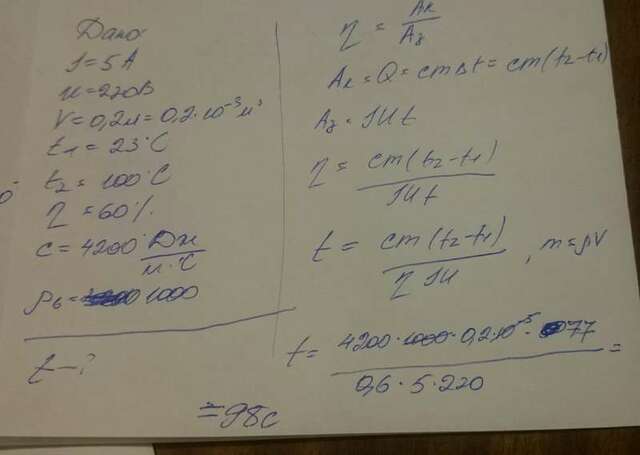 Дано:
I = 5 А
U = 220 В
V = 0,2 л = 0,2·10⁻³ м³
t₁ = 23°C
t₂ = 100°C
η = 60%
c = 4200 Дж/кг·°C
ρв = 1000
t – ?
η = Aп/Aз
Aп = Q = cmΔt = cm(t₂-t₁)
Aз = IUt
η = cm(t₂-t₁)/IUt
t = cm(t₂-t₁)/ηIU , m = ρV
t = 4200·1000·0,2·10⁻³·77/0,6·5·220 =
= 98 c